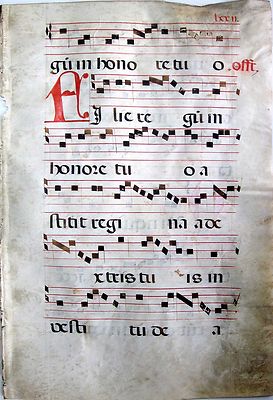 lxxii.
gū in hono re tu o. offt.
Fi lie re gū in
honore tu o a
stitit regi na a de
xtris tu is in
vesti tū de a